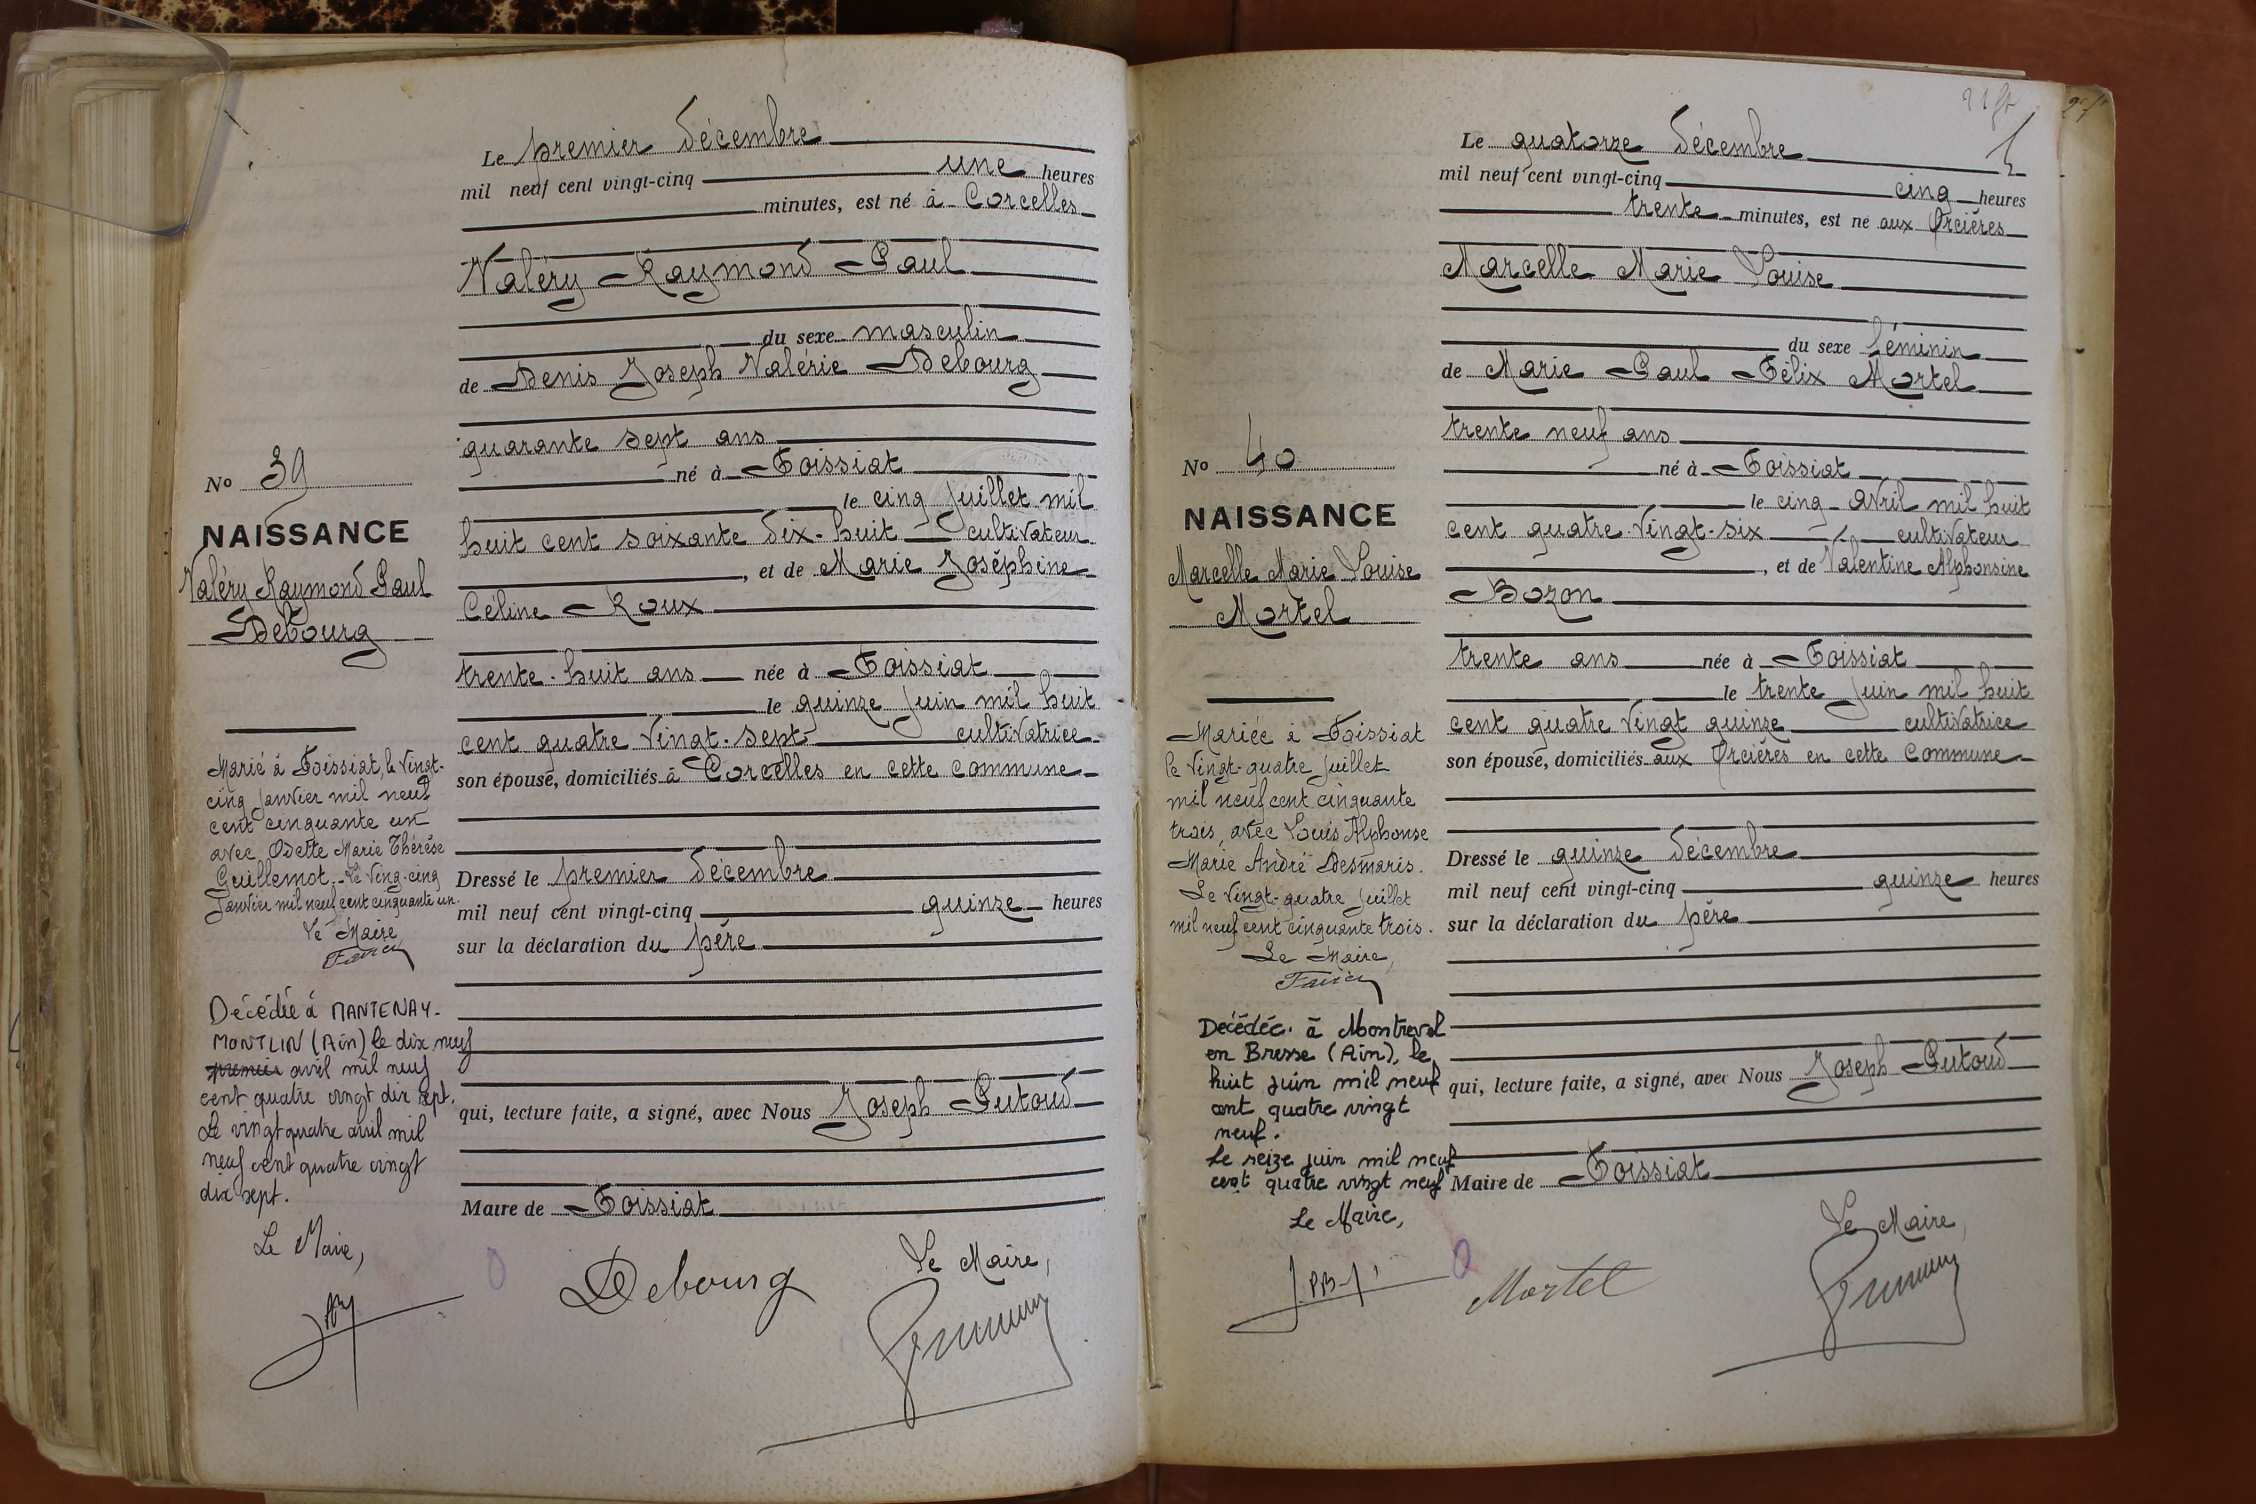 Le premier décembre
mil neuf cent vingt-cinq une heures
minutes, est né à Corcelles
Valéry Raymond Paul
du sexe masculin
de Denis Joseph Valérie Debourg
quarante sept ans
né à Foissiat
le cinq juillet mil
huit cent soixante dix-huit cultivateur
, et de Marie Joséphine
Céline Roux
trente-huit ans née à Foissiat
le quinze juin mil huit
cent quatre vingt-sept cultivatrice
son épouse, domiciliés à Corcelles en cette commune
Dressé le premier décembre
mil neuf cent vingt-cinq quinze heures
sur la déclaration du père
qui, lecture faite, a signé, avec Nous Joseph Putoud
Maire de Foissiat
Le Maire,
Debourg
No 39
NAISSANCE
Valéry Raymond Paul
Debourg
Marié à Foissiat, le vingt-
cinq janvier mil neuf
cent cinquante un
avec Odette Marie Thérèse
Guillemot. Le ving-cinq
janvier mil neuf cent cinquante un.
Le Maire
Décédée à MANTENAY-
MONTLIN (Ain) le dix neuf
premier avril mil neuf
cent quatre vingt dix sept.
Le vingt quatre avril mil
neuf cent quatre vingt
dix sept.
Le Maire,
Le quatorze décembre
mil neuf cent vingt-cinq cinq heures
trente minutes, est né aux Orcières
Marcelle Marie Louise
du sexe féminin
de Marie Paul Félix Mortel
trente neuf ans
né à Foissiat
le cinq avril mil huit
cent quatre-vingt-six cultivateur
, et de Valentine Alphonsine
Bozon
trente ans née à Foissiat
le trente juin mil huit
cent quatre vingt quinze cultivatrice
son épouse, domiciliés aux Orcières en cette commune
Dressé le quinze décembre
mil neuf cent vingt-cinq quinze heures
sur la déclaration du père
qui, lecture faite, a signé, avec Nous Joseph Putoud
Maire de Foissiat
Le Maire,
Mortel
No 40
NAISSANCE
Marcelle Marie Louise
Mortel
Mariée à Foissiat
le vingt-quatre juillet
mil neuf cent cinquante
trois, avec Louis Alphonse
Marie André Desmaris.
Le vingt-quatre juillet
mil neuf cent cinquante trois.
Le Maire,
Décédée à Montrevel
en Bresse (Ain), le
huit juin mil neuf
cent quatre vingt
neuf.
Le seize juin mil neuf
cent quatre vingt neuf
Le Maire,